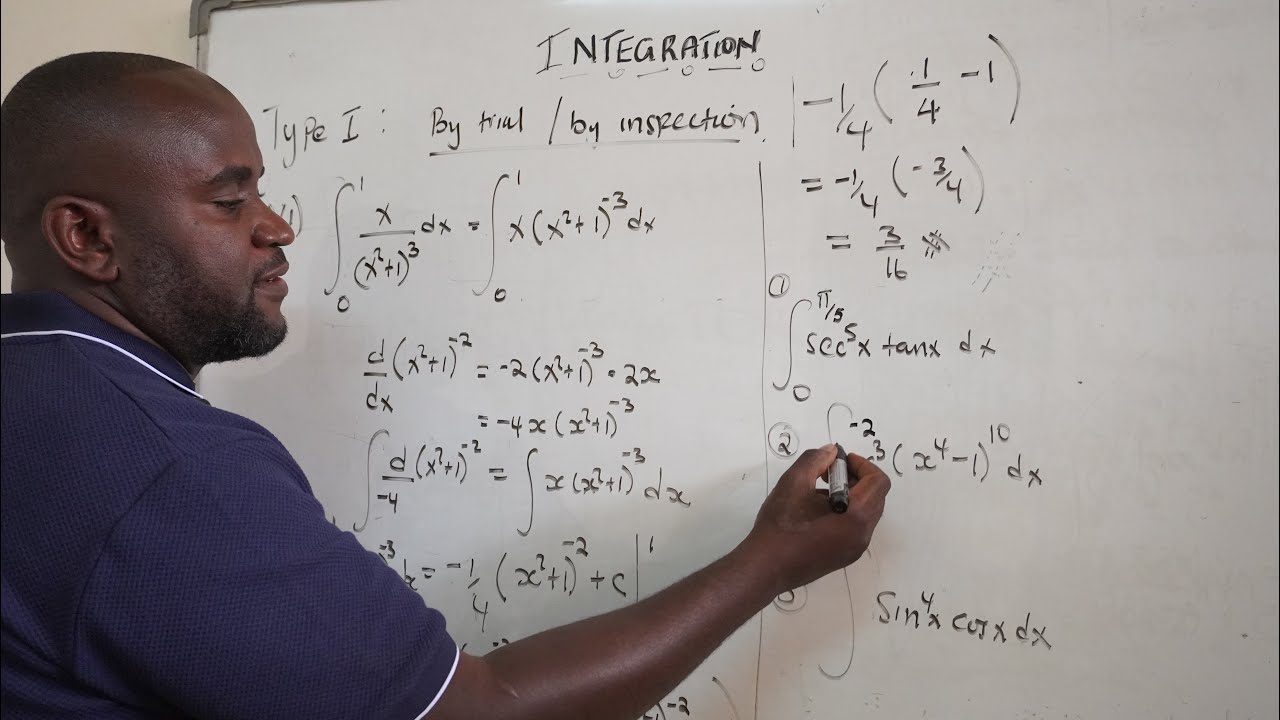 INTEGRATION
Type I: By trial / by inspection.
1) ∫₀¹ x/(x²+1)³ dx = ∫₀¹ x(x²+1)⁻³ dx
d/dx (x²+1)⁻² = -2(x²+1)⁻³ · 2x
= -4x(x²+1)⁻³
∫ d/-4 (x²+1)⁻² = ∫ x(x²+1)⁻³ dx
⁻³ dx = -1/4 (x²+1)⁻² + c |¹
-1/4 (1/4 - 1)
= -1/4 (-3/4)
= 3/16
① ∫₀^π/5 sec⁵x tanx dx
② ∫⁻² ³(x⁴-1)¹⁰ dx
sin⁴x cosx dx